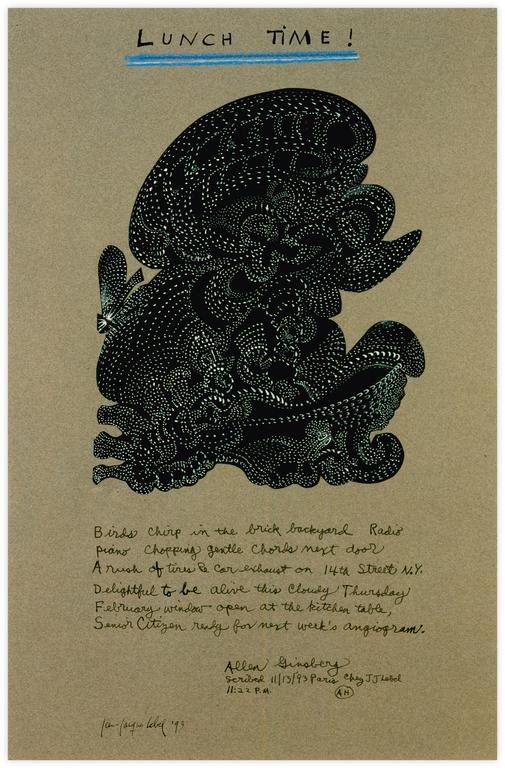 LUNCH TIME!
Birds chirp in the brick backyard Radio
piano chopping gentle chords next door
A rush of tires & car exhaust on 14th Street N.Y.
Delightful to be alive this cloudy Thursday
February window open at the kitchen table,
Senior Citizen ready for next week's angiogram.
Allen Ginsberg
Scribed 11/13/93 Paris Chez JJ Lebel
11:22 P.M. AH
Jean-Jacques Lebel '93